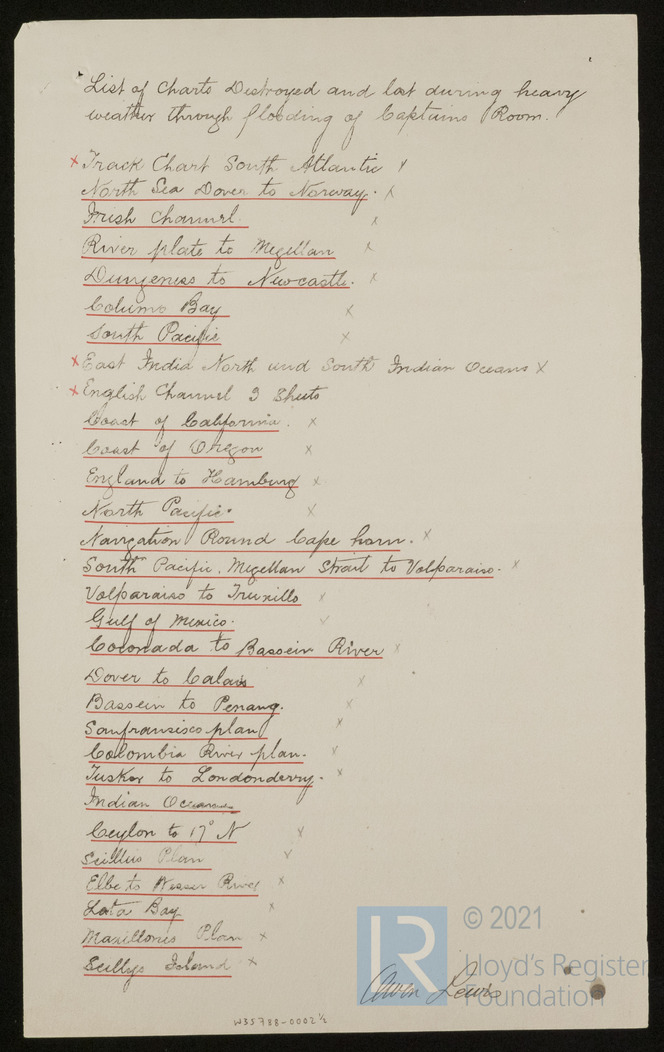 List of Charts Destroyed and lost during heavy
weather through flooding of Captains Room.
x Track Chart South Atlantic x
North Sea Dover to Norway. x
Irish Channel. x
River plate to Megellan x
Dungeness to Newcastle. x
Columo Bay x
South Pacific x
x East India North and South Indian Oceans x
x English Channel 3 Sheets
Coast of California. x
Coast of Oregon x
England to Hamburg x
North Pacific. x
Navigation Round Cape horn. x
South Pacific. Megellan Strait to Valparaiso. x
Valparaiso to Truxillo x
Gulf of Mexico. ✓
Coronada to Bassein River x
Dover to Calais x
Bassein to Penang. x
Sanfransisco plan x
Colombia River plan. x
Tusker to Londonderry. x
Indian Oceans
Ceylon to 17° N x
Scillies Plan ✓
Elbe to Wesser River x
Lota Bay x
Maxillones Plan x
Scillys Island x
Owen Lewis
W35788-0002½
© 2021
Lloyd's Register
Foundation
LR